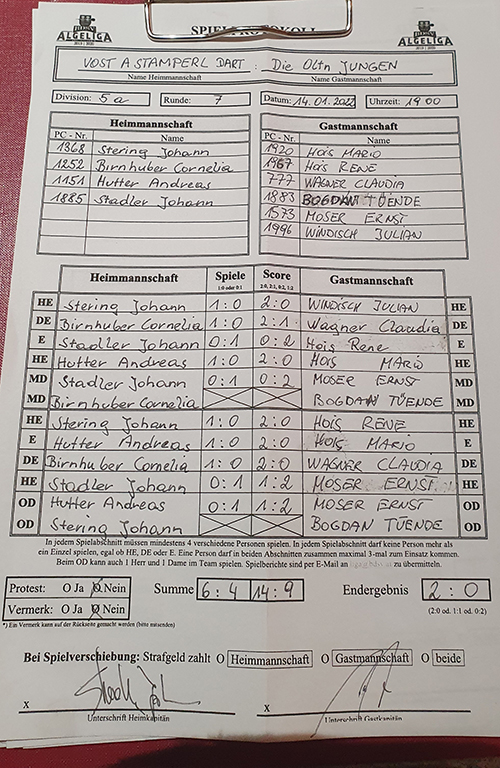 SPIELPROTOKOLL
ALGELIGA ALGELIGA
VOST A STAMPERL DART : Die OLtn JUNGEN
Name Heimmannschaft Name Gastmannschaft
Division: 5a Runde: 7 Datum: 14.01.2022 Uhrzeit: 19 00
Heimmannschaft Gastmannschaft
PC - Nr. Name PC - Nr. Name
1368 Stering Johann 1920 HOiS MARiO
1252 Birnhuber Cornelia 1967 HOiS RENE
1151 Hutter Andreas 777 WAGNER CLAUDiA
1885 Stadler Johann 1883 BOGDAN TÜENDE
1573 MOSER ERNST
1996 WiNDiSCH JULiAN
Heimmannschaft Spiele Score Gastmannschaft
1:0 oder 0:1 2:0, 2:1, 0:2, 1:2
HE Stering Johann 1:0 2:0 WiNDiSCH JULiAN HE
DE Birnhuber Cornelia 1:0 2:1 Wagner Claudia DE
E Stadler Johann 0:1 0:2 Hois Rene E
HE Hutter Andreas 1:0 2:0 HOiS MARiO HE
MD Stadler Johann 0:1 0:2 MOSER ERNST MD
MD Birnhuber Cornelia BOGDAN TÜENDE MD
HE Stering Johann 1:0 2:0 HOiS RENE HE
E Hutter Andreas 1:0 2:0 HOiS MARiO E
DE Birnhuber Cornelia 1:0 2:0 WAGNER CLAUDiA DE
HE Stadler Johann 0:1 1:2 MOSER ERNST HE
OD Hutter Andreas 0:1 1:2 MOSER ERNST OD
OD Stering Johann BOGDAN TÜENDE OD
In jedem Spielabschnitt müssen mindestens 4 verschiedene Personen spielen. In jedem Spielabschnitt darf keine Person mehr als
ein Einzel spielen, egal ob HE, DE oder E. Eine Person darf in beiden Abschnitten zusammen maximal 3-mal zum Einsatz kommen.
Beim OD kann auch 1 Herr und 1 Dame im Team spielen. Spielberichte sind per E-Mail an zu übermitteln.
Protest: O Ja O Nein Summe 6:4 14:9 Endergebnis 2:0
Vermerk: O Ja O Nein (2:0 od. 1:1 od. 0:2)
*) Ein Vermerk kann auf der Rückseite gemacht werden (bitte mitsenden)
Bei Spielverschiebung: Strafgeld zahlt O Heimmannschaft O Gastmannschaft O beide
x x
Unterschrift Heimkapitän Unterschrift Gastkapitän